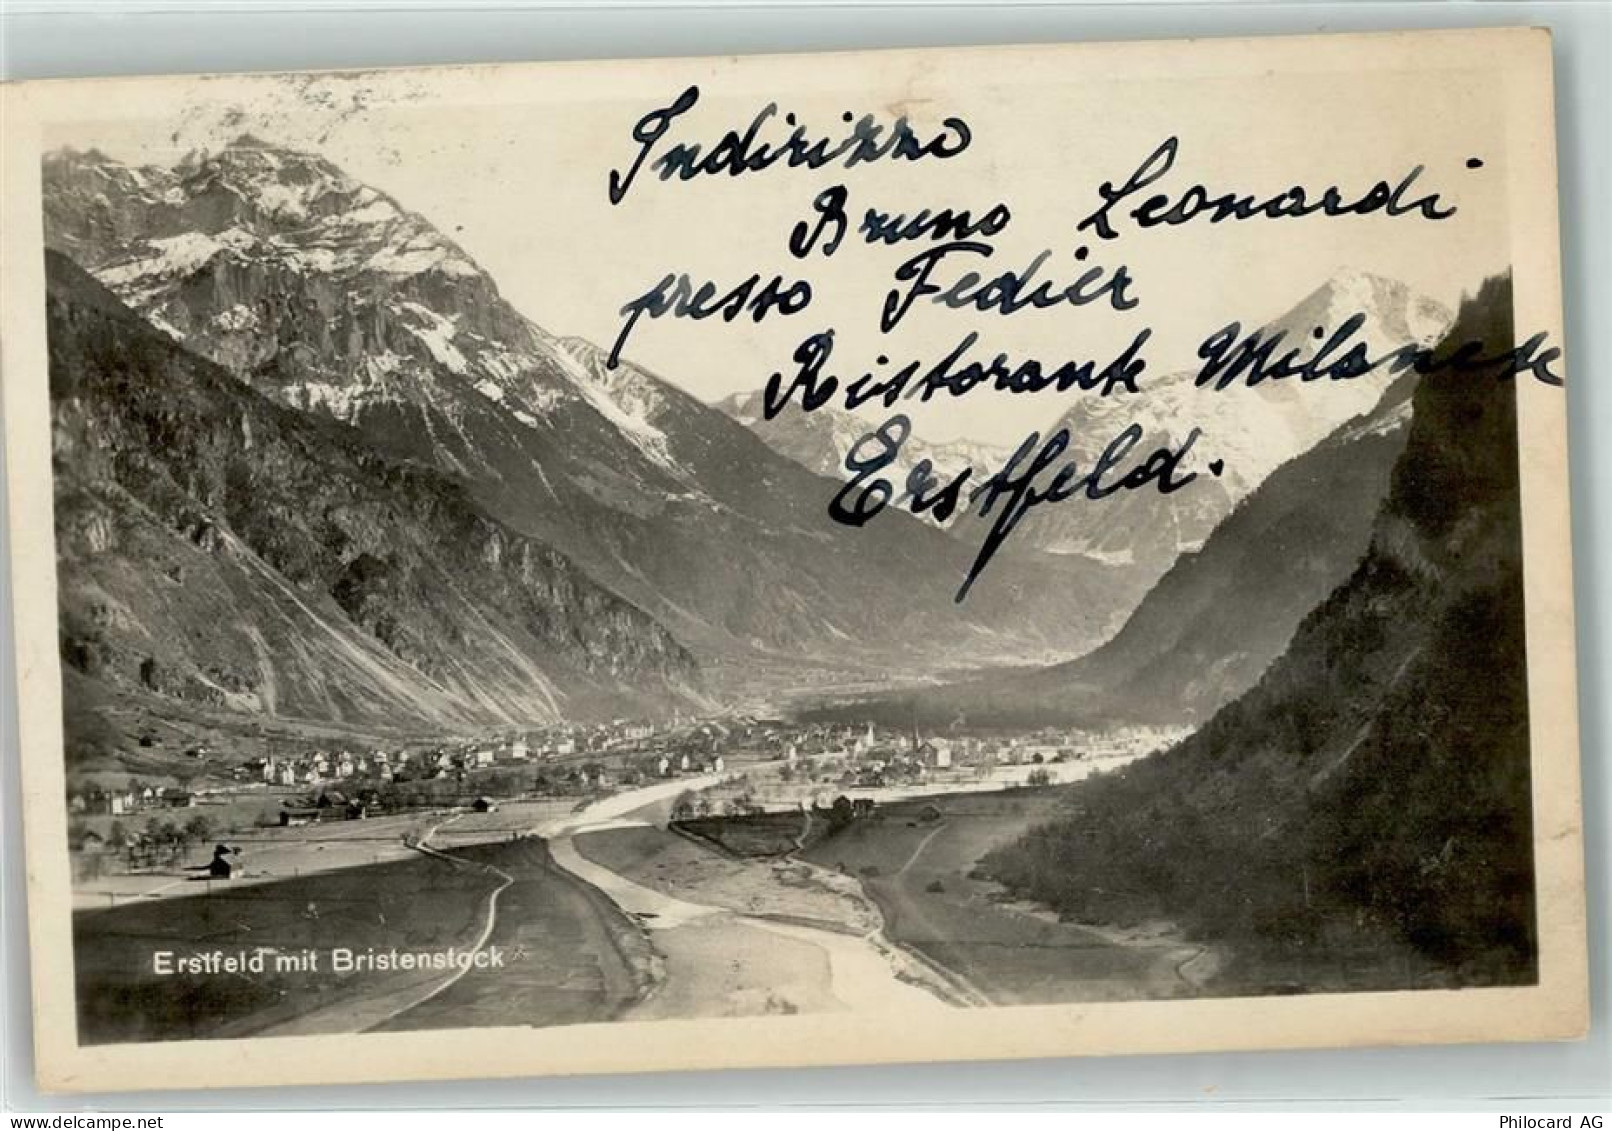 Indirizzo
Bruno Leonardi
presso Fedier
Ristorante Milanese
Erstfeld.
Erstfeld mit Bristenstock
Philocard AG